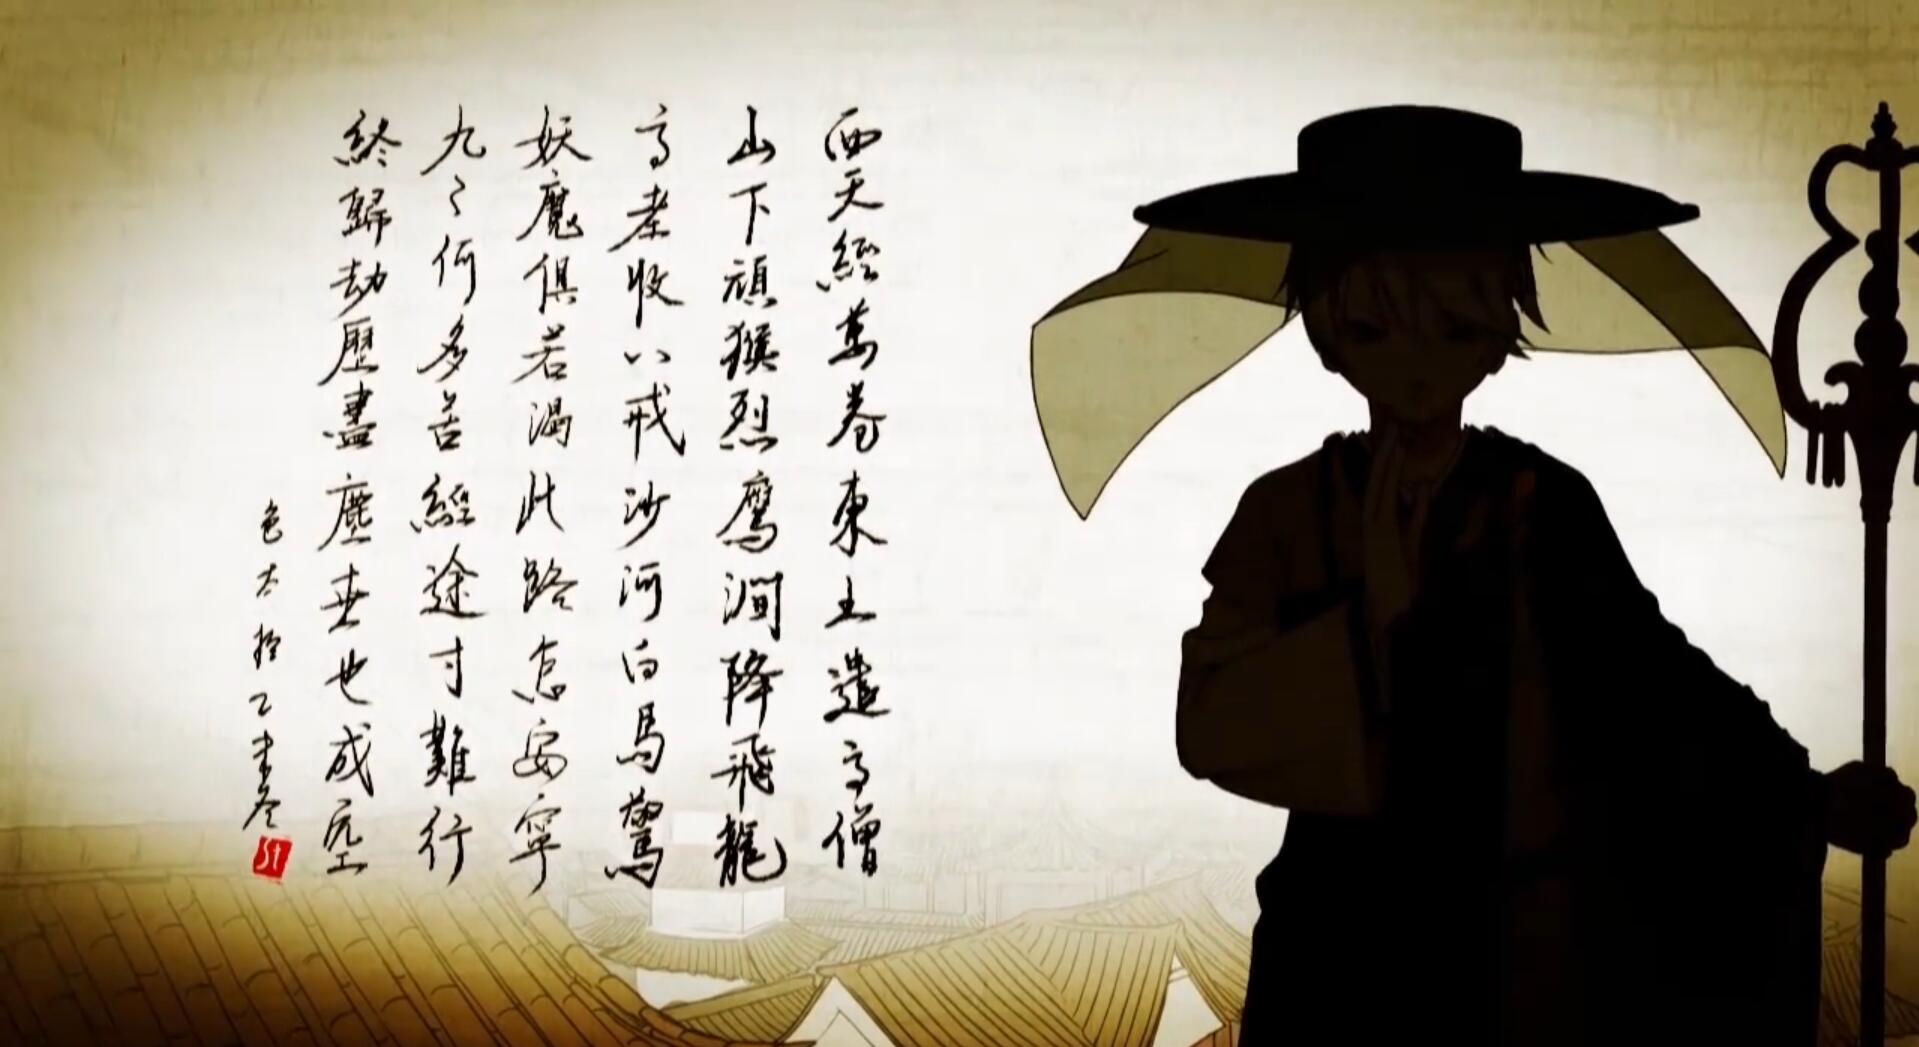 西天經萬卷東土遣高僧
山下頑猴烈鷹澗降飛龍
高老收八戒沙河白馬驚
妖魔俱若渴此路怎安寧
九々何多苦經途寸難行
終歸劫歷盡塵垂也成空